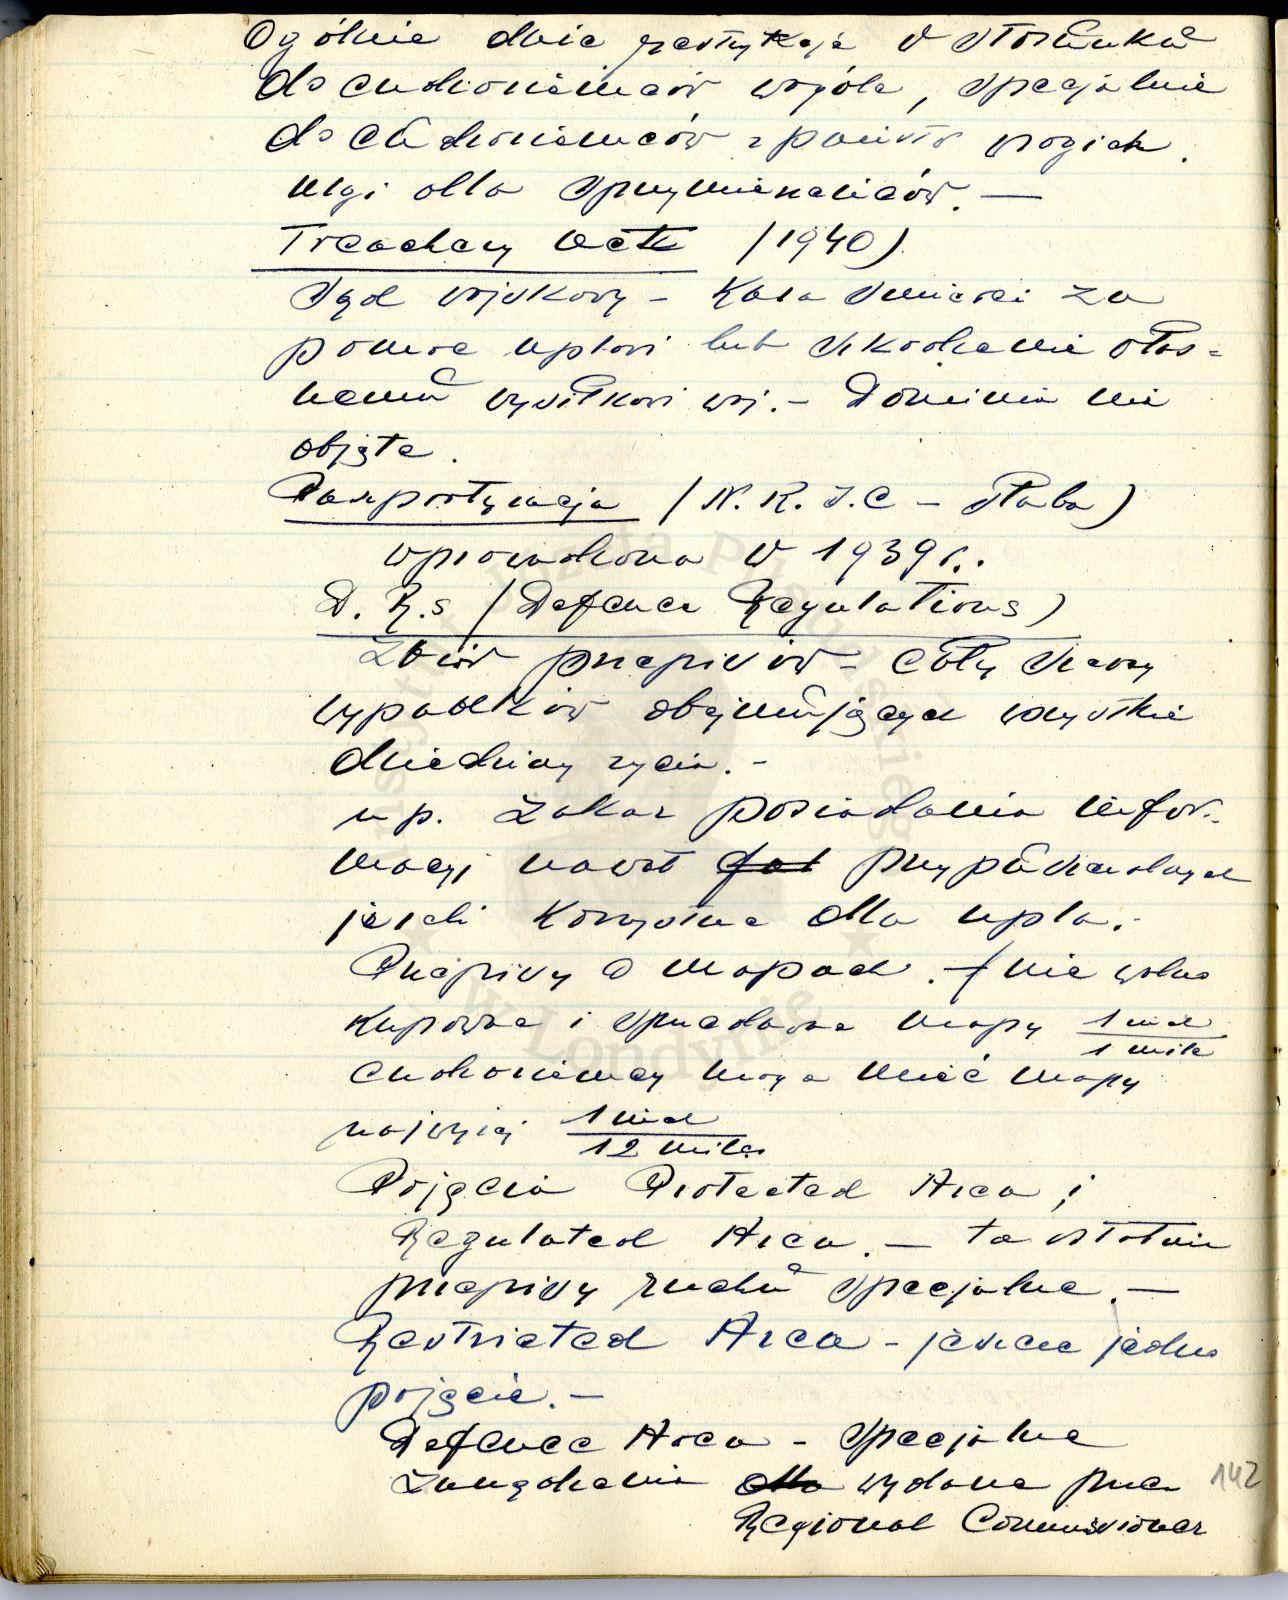 Ogólnie duże restrykcje w stosunku
do cudzoziemców wogóle, specjalnie
do cudzoziemców z państw wrogich.
ulgi dla sprzymierzeńców. —
Treachery Act (1940)
Sąd wojskowy – Kara śmierci za
pomoc nplowi lub szkodzenie włas=
nemu wysiłkowi woj. – Dominia nie
objęte.
Paszportyzacja (N. R. I. C – słaba)
wprowadzona w 1939 r..
D. R.s (Defence Regulations)
Zbiór przepisów – cały szereg
wypadków obejmujących wszystkie
dziedziny życia. –
np. Zakaz posiadania infor-
macyj nawet przypuszczalnych
jeżeli korzystne dla npla. –
Przepisy o mapach. – (nie wolno
kupować i sprzedawać mapy 1 inch
1 mile
cudzoziemcy mogą mieć mapy
najwyżej 1 inch
12 miles
Pojęcia Protected Area, i
Regulated Area. – ta ostatnia
przepisy ruchu specjalne. —
Restricted Area – jeszcze jedno
pojęcie. —
Defence Area – specjalne
Zarządzenia dla wydane przez
Regional Commissioner
142
w Londynie